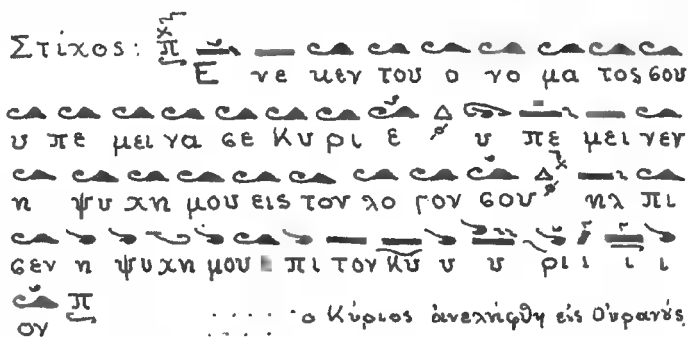 Στίχος: π
Ε νε κεν του ο νο μα τος σου
υ πε μει να σε Κυ ρι ε Δ υ πε μει νεν
η ψυ χη μου εις τον λο γον σου Δ ηλ πι
σεν η ψυ χη μου πι τον Κυ υ υ ρι ι ι ι
ον π ο Κύριος ἀνελήφθη εἰς Οὐρανούς,